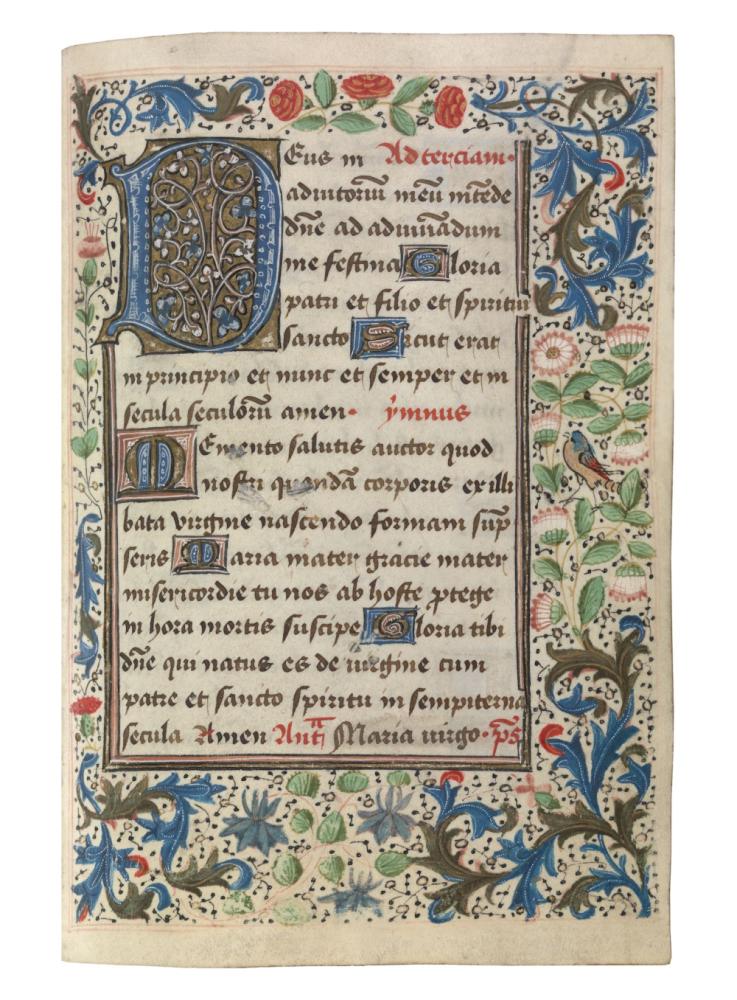 Deus in Ad terciam.
adiutoriū meū intēde
dn̄e ad adiuuādum
me festina Gloria
patri et filio et spiritui
sancto Sicut erat
in principio et nunc et semper et in
secula seculorū amen. ẏmnus
Memento salutis auctor quod
nostri quondā corporis ex illi
bata virgine nascendo formam sūp
seris Maria mater gracie mater
misericordie tu nos ab hoste ꝓtege
in hora mortis suscipe Gloria tibi
dn̄e qui natus es de uirgine cum
patre et sancto spiritu in sempiterna
secula Amen Antᵃ Maria uirgo. p̄s